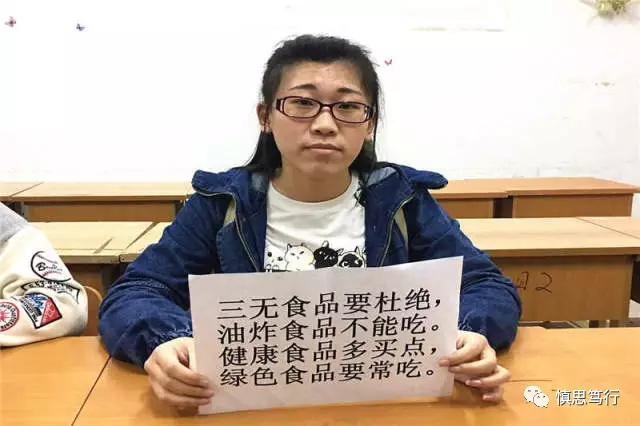 三无食品要杜绝，
油炸食品不能吃。
健康食品多买点，
绿色食品要常吃。
慎思笃行